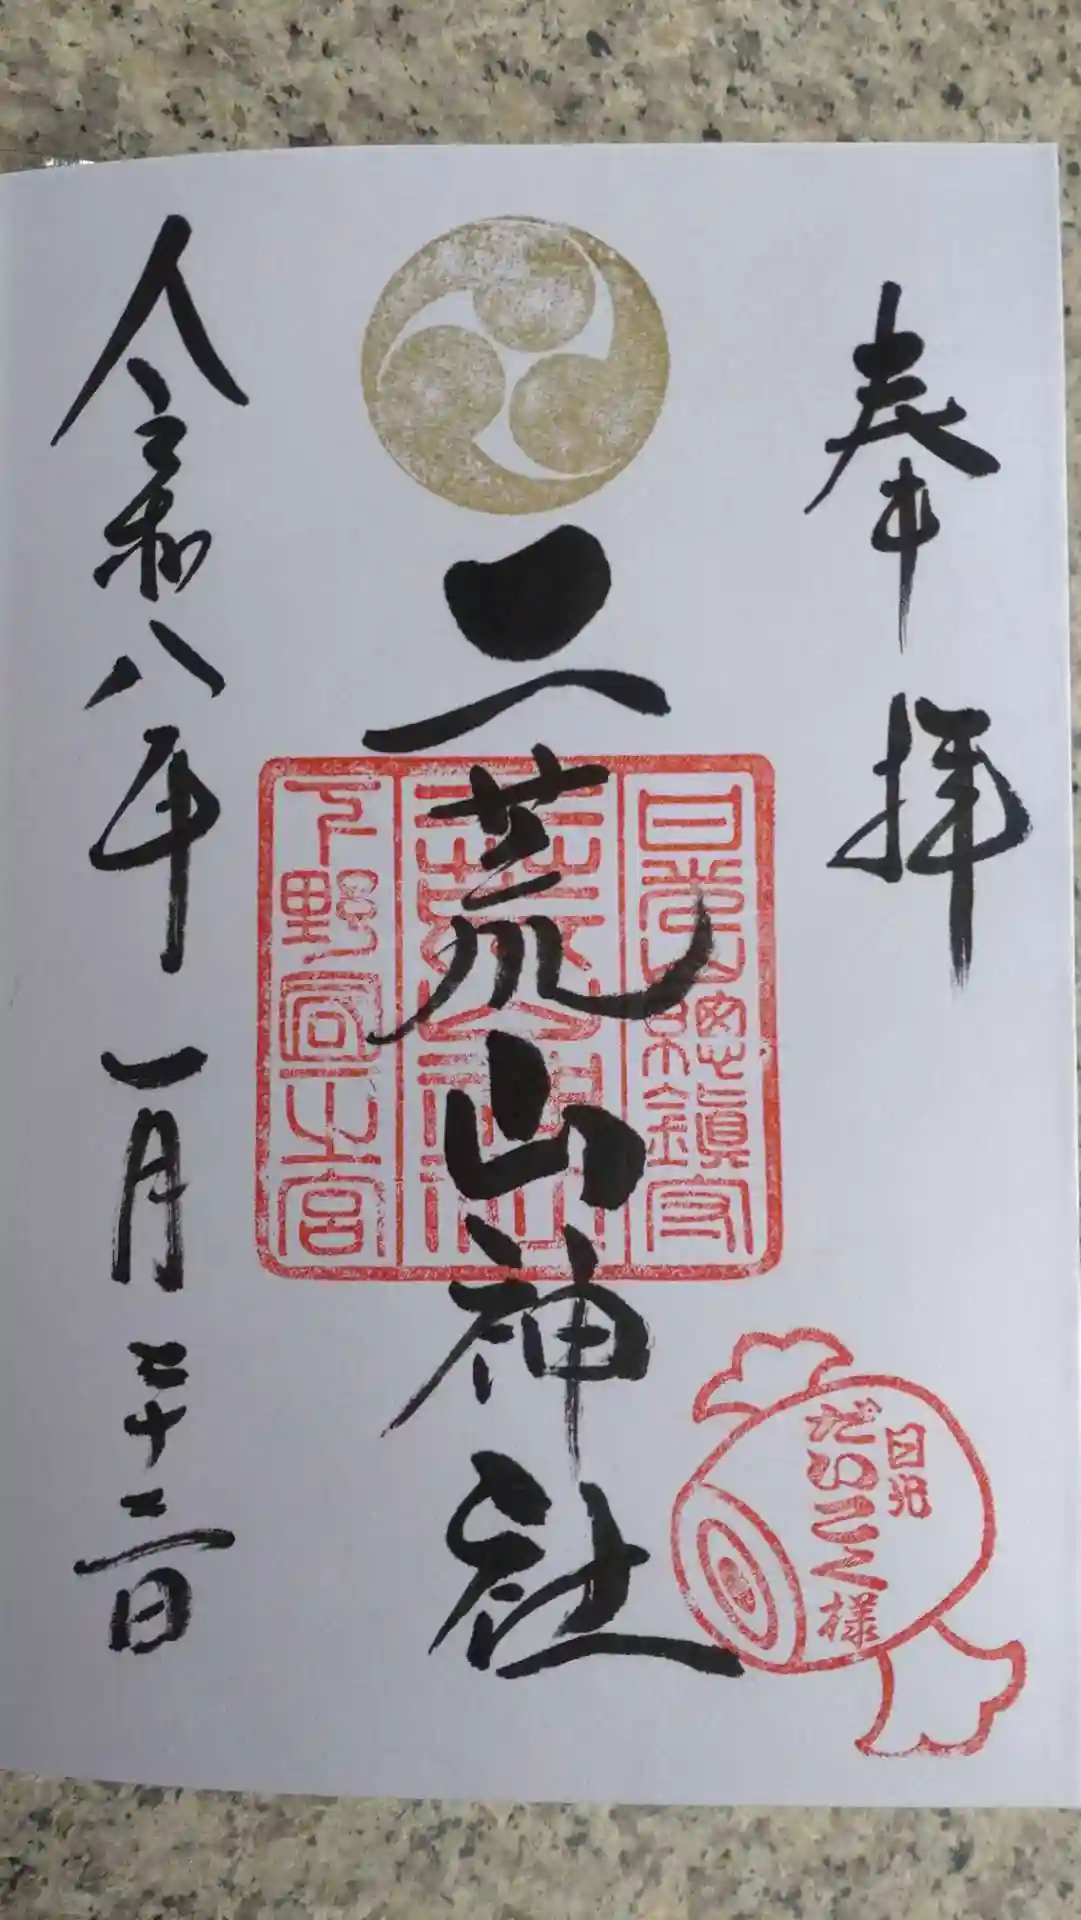 奉拝
日光總鎮守
二荒山神社
二荒山神社
下野國一之宮
令和八年一月二十二日
日光
だいこく様